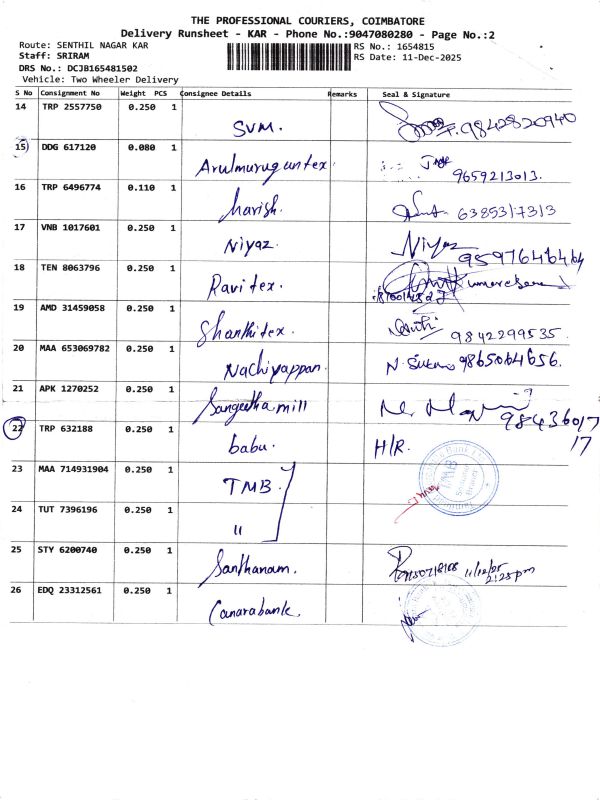 THE PROFESSIONAL COURIERS, COIMBATORE
Delivery Runsheet - KAR - Phone No.:9047080280 - Page No.:2
Route: SENTHIL NAGAR KAR RS No.: 1654815
Staff: SRIRAM RS Date: 11-Dec-2025
DRS No.: DCJB165481502
Vehicle: Two Wheeler Delivery
S No Consignment No Weight PCS Consignee Details Remarks Seal & Signature
14 TRP 2557750 0.250 1
SVM. 9842820940
15 DDG 617120 0.080 1
Arulmuruguntex. 9659213013.
16 TRP 6496774 0.110 1
harish. 6385317313
17 VNB 1017601 0.250 1
Niyaz. Niyaz 9597646464
18 TEN 8063796 0.250 1
Ravi tex. Kumaresan
19 AMD 31459058 0.250 1
Shanthitex. 9842299535.
20 MAA 653069782 0.250 1
Nachiyappan. 9865064656.
21 APK 1270252 0.250 1
Sangeetha mill 98436017
22 TRP 632188 0.250 1 17
babu. H/R.
23 MAA 714931904 0.250 1
TMB TMB
24 TUT 7396196 0.250 1
"
25 STY 6200740 0.250 1
Santhanam. 11/12/25
2:25pm
26 EDQ 23312561 0.250 1
Canarabank.